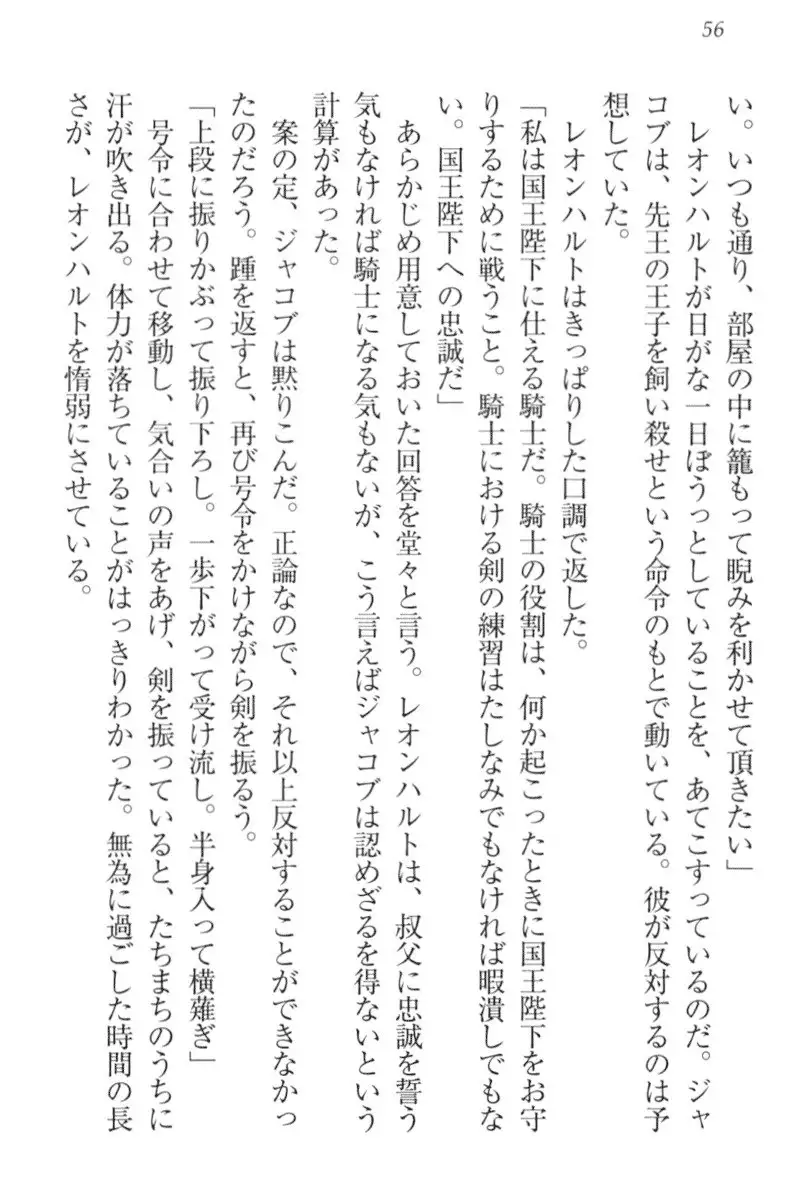 56
い。いつも通り、部屋の中に籠もって睨みを利かせて頂きたい」
　レオンハルトが日がな一日ぼうっとしていることを、あてこすっているのだ。ジャ
コブは、先王の王子を飼い殺せという命令のもとで動いている。彼が反対するのは予
想していた。
　レオンハルトはきっぱりした口調で返した。
「私は国王陛下に仕える騎士だ。騎士の役割は、何か起こったときに国王陛下をお守
りするために戦うこと。騎士における剣の練習はたしなみでもなければ暇潰しでもな
い。国王陛下への忠誠だ」
　あらかじめ用意しておいた回答を堂々と言う。レオンハルトは、叔父に忠誠を誓う
気もなければ騎士になる気もないが、こう言えばジャコブは認めざるを得ないという
計算があった。
　案の定、ジャコブは黙りこんだ。正論なので、それ以上反対することができなかっ
たのだろう。踵を返すと、再び号令をかけながら剣を振るう。
「上段に振りかぶって振り下ろし。一歩下がって受け流し。半身入って横薙ぎ」
　号令に合わせて移動し、気合いの声をあげ、剣を振っていると、たちまちのうちに
汗が吹き出る。体力が落ちていることがはっきりわかった。無為に過ごした時間の長
さが、レオンハルトを惰弱にさせている。